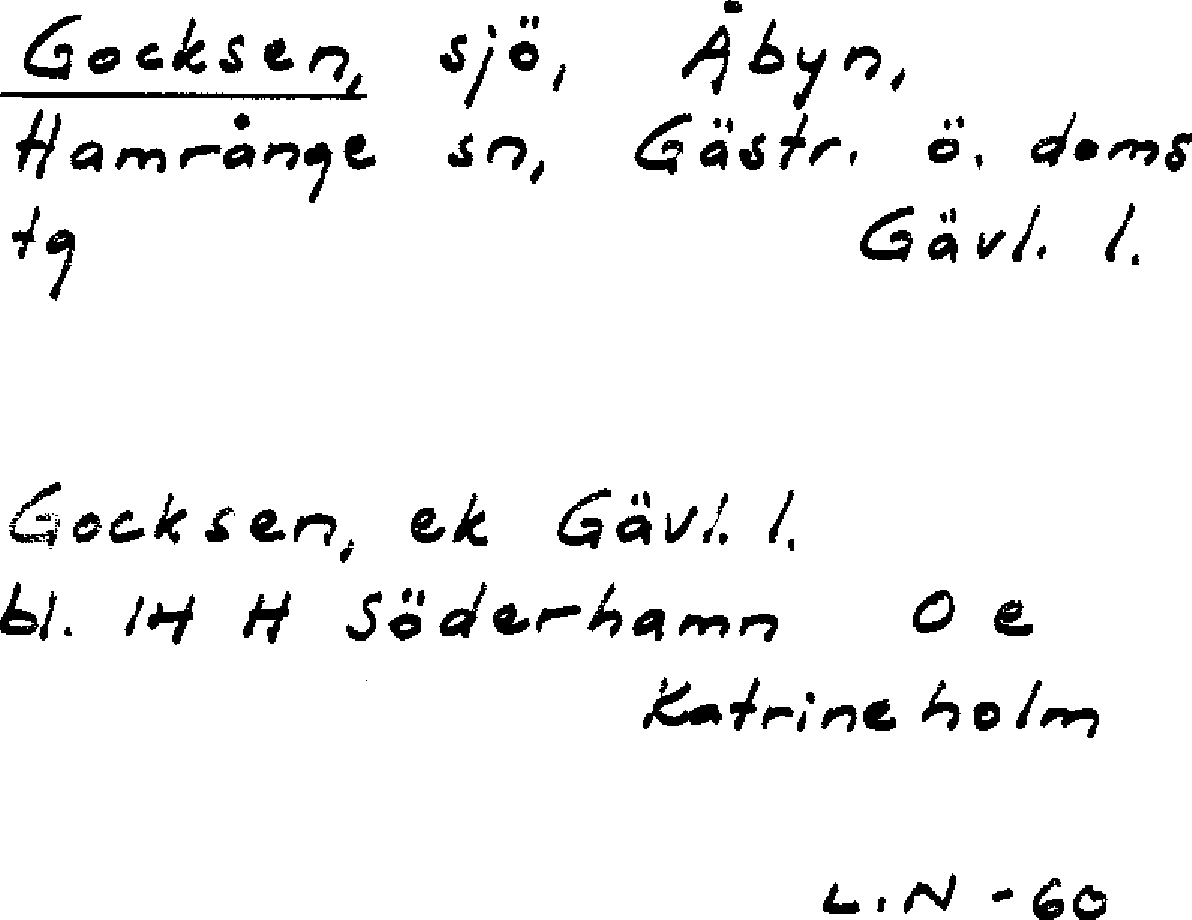 Gocksen, sjö, Åbyn,
Hamrånge sn, Gästr. ö. doms
tg Gävl. l.
Gocksen, ek Gävl. l.
bl. 14 H Söderhamn O e
Katrineholm
L.N -60